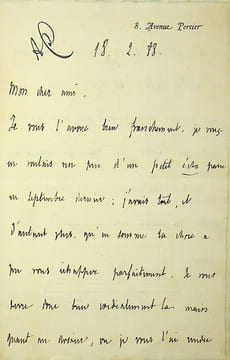 8. Avenue Percier
18. 2. 98.
Mon cher ami,
Je vous l'avoue bien franchement, je vous
en voulais un peu d'un petit écho paru
en septembre dernier ; j'avais tort, et
d'autant plus, qu'en somme la chose a
pu vous échapper parfaitement. Je vous
serre donc bien cordialement la main
quant au dessin, on je vous l'ai